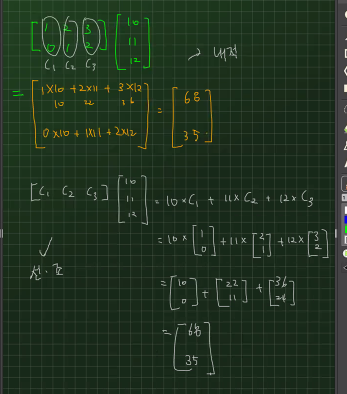 [1 2 3
0 1 2] [10
11
12]
C₁ C₂ C₃
→ 내적
= [1×10 + 2×11 + 3×12
10 22 36
0×10 + 1×11 + 2×12] = [68
35]
[C₁ C₂ C₃] [10
11
12] = 10×C₁ + 11×C₂ + 12×C₃
= 10×[1
0] + 11×[2
1] + 12×[3
2]
= [10
0] + [22
11] + [36
24]
= [68
35]